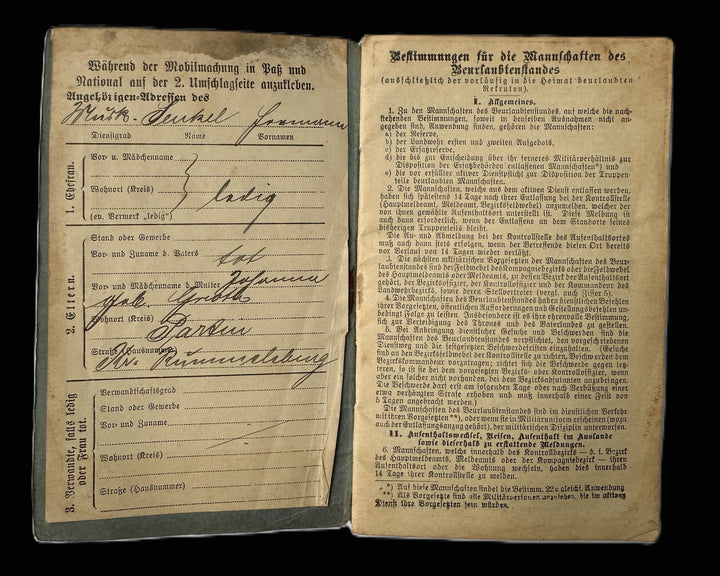 Während der Mobilmachung in Paß und
National auf der 2. Umschlagseite anzukleben.
Angehörigen-Adressen des
Musk. Hermann
Dienstgrad Name Vornamen
1. Ehefrau.
Vor- u. Mädchenname
Wohnort (Kreis)
ledig
(ev. Vermerk „ledig“)
2. Eltern.
Stand oder Gewerbe
Vor- und Zuname d. Vaters tot
Vor- und Mädchenname d. Mutter Johanna
geb.
Wohnort (Kreis)
Straße (Hausnummer)
Kr. Rummelsburg
3. Verwandte, falls ledig
oder Frau tot.
Verwandtschaftsgrad
Stand oder Gewerbe
Vor- und Zuname
Wohnort (Kreis)
Straße (Hausnummer)
Bestimmungen für die Mannschaften des
Beurlaubtenstandes
(ausschließlich der vorläufig in die Heimat beurlaubten
Rekruten).
I. Allgemeines.
1. Zu den Mannschaften des Beurlaubtenstandes, auf welche die nach-
stehenden Bestimmungen, soweit in denselben Ausnahmen nicht an-
gegeben sind, Anwendung finden, gehören die Mannschaften:
a) der Reserve,
b) der Landwehr ersten und zweiten Aufgebots,
c) der Ersatzreserve,
d) die bis zur Entscheidung über ihr ferneres Militärverhältnis zur
Disposition der Ersatzbehörden entlassenen Mannschaften*) und
e) die vor erfüllter aktiver Dienstpflicht zur Disposition der Truppen-
teile beurlaubten Mannschaften.
2. Die Mannschaften, welche aus dem aktiven Dienst entlassen werden,
haben sich spätestens 14 Tage nach ihrer Entlassung bei der Kontrollstelle
(Hauptmeldeamt, Meldeamt, Bezirksfeldwebel) anzumelden, welcher der
von ihnen gewählte Aufenthaltsort unterstellt ist. Diese Meldung ist
auch dann erforderlich, wenn der Entlassene an dem Standorte seines
bisherigen Truppenteils bleibt.
Die An- und Abmeldung bei der Kontrollstelle des Aufenthaltsortes
muß auch dann stets erfolgen, wenn der Betreffende diesen Ort bereits
vor Verlauf von 14 Tagen wieder verläßt.
3. Die nächsten militärischen Vorgesetzten der Mannschaften des Beur-
laubtenstandes sind der Feldwebel des Kompagniebezirks oder die Feldwebel
des Hauptmeldeamts oder Meldeamts, zu dessen Bezirk der Aufenthaltsort
gehört, der Bezirksoffizier, der Kontrolloffizier und der Kommandeur des
Landwehrbezirks, sowie deren Stellvertreter (vergl. auch Ziffer 5).
4. Die Mannschaften des Beurlaubtenstandes haben dienstlichen Befehlen
ihrer Vorgesetzten, öffentlichen Aufforderungen und Gestellungsbefehlen un-
bedingt Folge zu leisten. Insbesondere ist es ihre ehrenvolle Bestimmung,
sich zur Verteidigung des Thrones und des Vaterlandes zu gestellen.
5. Bei Anbringung dienstlicher Gesuche und Beschwerden sind die
Mannschaften des Beurlaubtenstandes verpflichtet, den vorgeschriebenen
Dienstweg und die festgesetzten Beschwerdefristen einzuhalten. (Gesuche
sind an den Bezirksfeldwebel der Kontrollstelle zu richten, Beschwerden dem
Bezirkskommandeur vorzutragen; richtet sich die Beschwerde gegen letz-
teren, so ist sie bei dem vorgesetzten Bezirks- oder Kontrolloffizier, wenn
aber ein solcher nicht vorhanden, bei dem Bezirksadjutanten anzubringen.
Die Beschwerde darf erst am folgenden Tage oder nach Verbüßung einer
etwa verhängten Strafe erhoben und muß innerhalb einer Frist von
5 Tagen angebracht werden.)
Die Mannschaften des Beurlaubtenstandes sind im dienstlichen Verkehr
mit ihren Vorgesetzten**), oder wenn sie in Militäruniform erscheinen (wozu
auch der Entlassungsanzug gehört), der militärischen Disziplin unterworfen.
II. Aufenthaltswechsel, Reisen, Aufenthalt im Auslande
sowie dieserhalb zu erstattende Meldungen.
6. Mannschaften, welche innerhalb des Kontrollbezirks — d. i. Bezirk
des Hauptmeldeamts, Meldeamts oder der Kompagniebezirk — ihren
Aufenthaltsort oder die Wohnung wechseln, haben dies innerhalb
14 Tage der Kontrollstelle zu melden.
*) Auf diese Mannschaften findet die Bestimm. 22e gleichf. Anwendung
**) Als Vorgesetzte sind alle Militärpersonen anzusehen, die im aktiven
Dienst ihre Vorgesetzten sein würden.